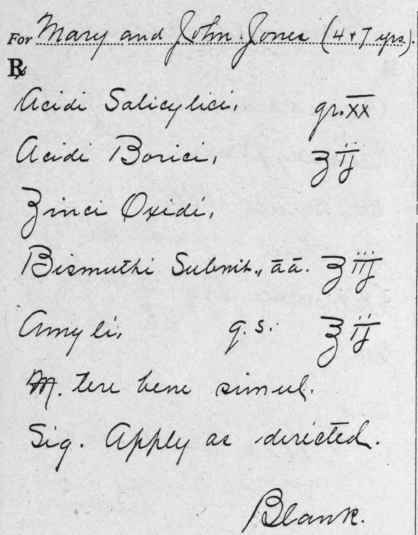 For Mary and John Jones (4 + 7 yrs).
℞
Acidi Salicylici, gr. xx
Acidi Borici, ʒ ij
Zinci Oxidi,
Bismuthi Subnit., āā. ʒ iij
Amyli, q.s. ʒ ij
M. tere bene simul.
Sig. Apply as directed.
Blank.